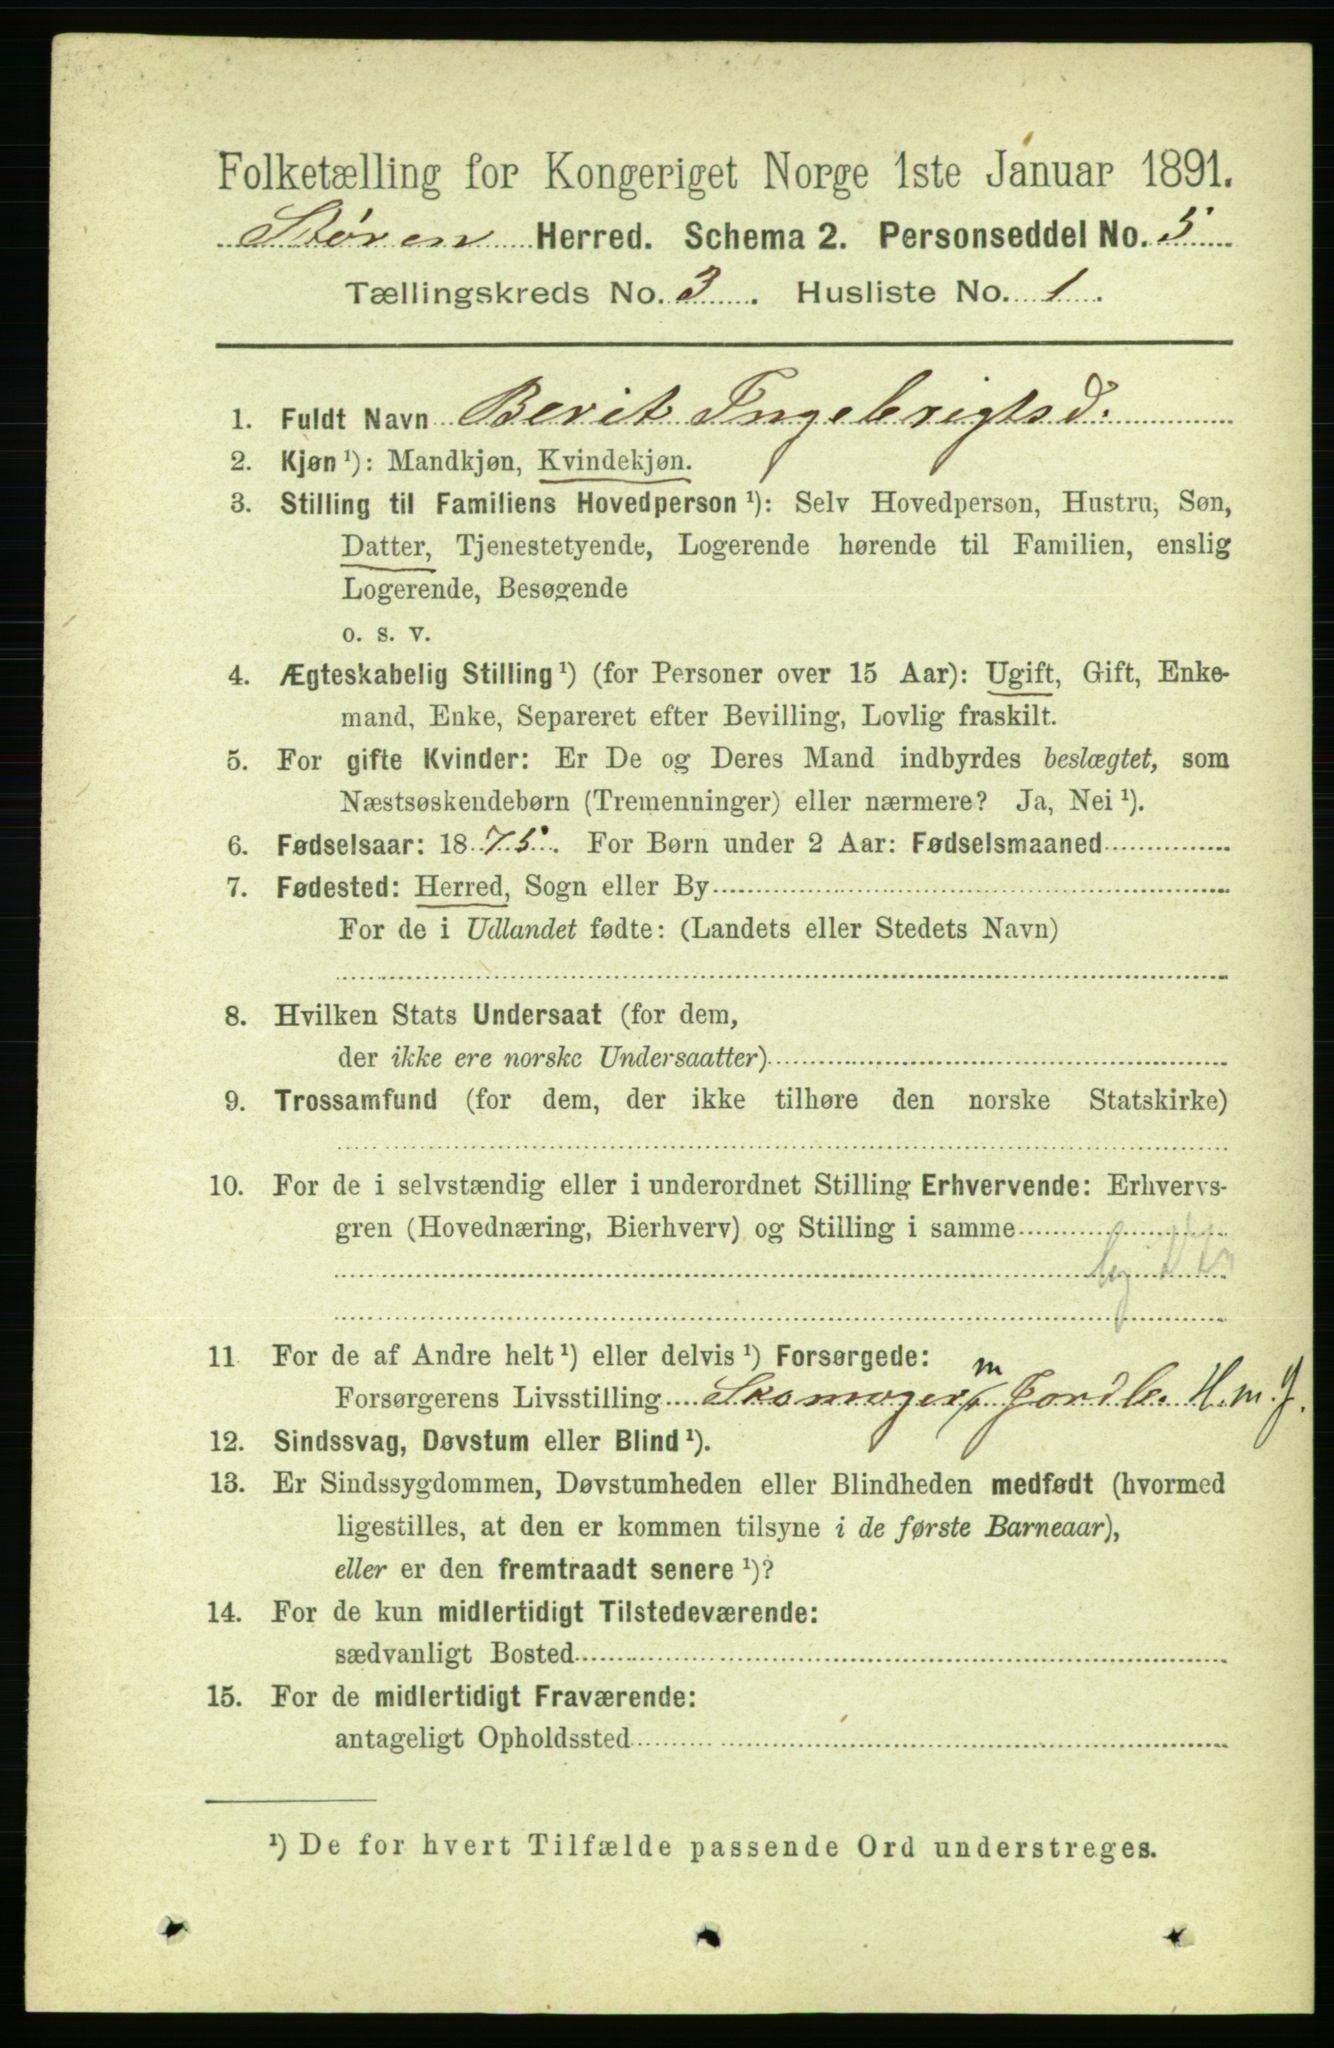 Folketælling for Kongeriget Norge 1ste Januar 1891.
Støren Herred. Schema 2. Personseddel No. 5
Tællingskreds No. 3. Husliste No. 1.
1. Fuldt Navn Berit Ingebrigtsd.
2. Kjøn ¹): Mandkjøn, Kvindekjøn.
3. Stilling til Familiens Hovedperson ¹): Selv Hovedperson, Hustru, Søn,
Datter, Tjenestetyende, Logerende hørende til Familien, enslig
Logerende, Besøgende
o. s. v.
4. Ægteskabelig Stilling ¹) (for Personer over 15 Aar): Ugift, Gift, Enke-
mand, Enke, Separeret efter Bevilling, Lovlig fraskilt.
5. For gifte Kvinder: Er De og Deres Mand indbyrdes beslægtet, som
Næstsøskendebørn (Tremenninger) eller nærmere? Ja, Nei ¹).
6. Fødselsaar: 1875. For Børn under 2 Aar: Fødselsmaaned
7. Fødested: Herred, Sogn eller By
For de i Udlandet fødte: (Landets eller Stedets Navn)
8. Hvilken Stats Undersaat (for dem,
der ikke ere norske Undersaatter)
9. Trossamfund (for dem, der ikke tilhøre den norske Statskirke)
10. For de i selvstændig eller i underordnet Stilling Erhvervende: Erhvervs-
gren (Hovednæring, Bierhverv) og Stilling i samme
11 For de af Andre helt ¹) eller delvis ¹) Forsørgede:
Forsørgerens Livsstilling Skomager m Jordb. H. m. J.
12. Sindssvag, Døvstum eller Blind ¹).
13. Er Sindssygdommen, Døvstumheden eller Blindheden medfødt (hvormed
ligestilles, at den er kommen tilsyne i de første Barneaar),
eller er den fremtraadt senere ¹)?
14. For de kun midlertidigt Tilstedeværende:
sædvanligt Bosted
15. For de midlertidigt Fraværende:
antageligt Opholdssted
¹) De for hvert Tilfælde passende Ord understreges.